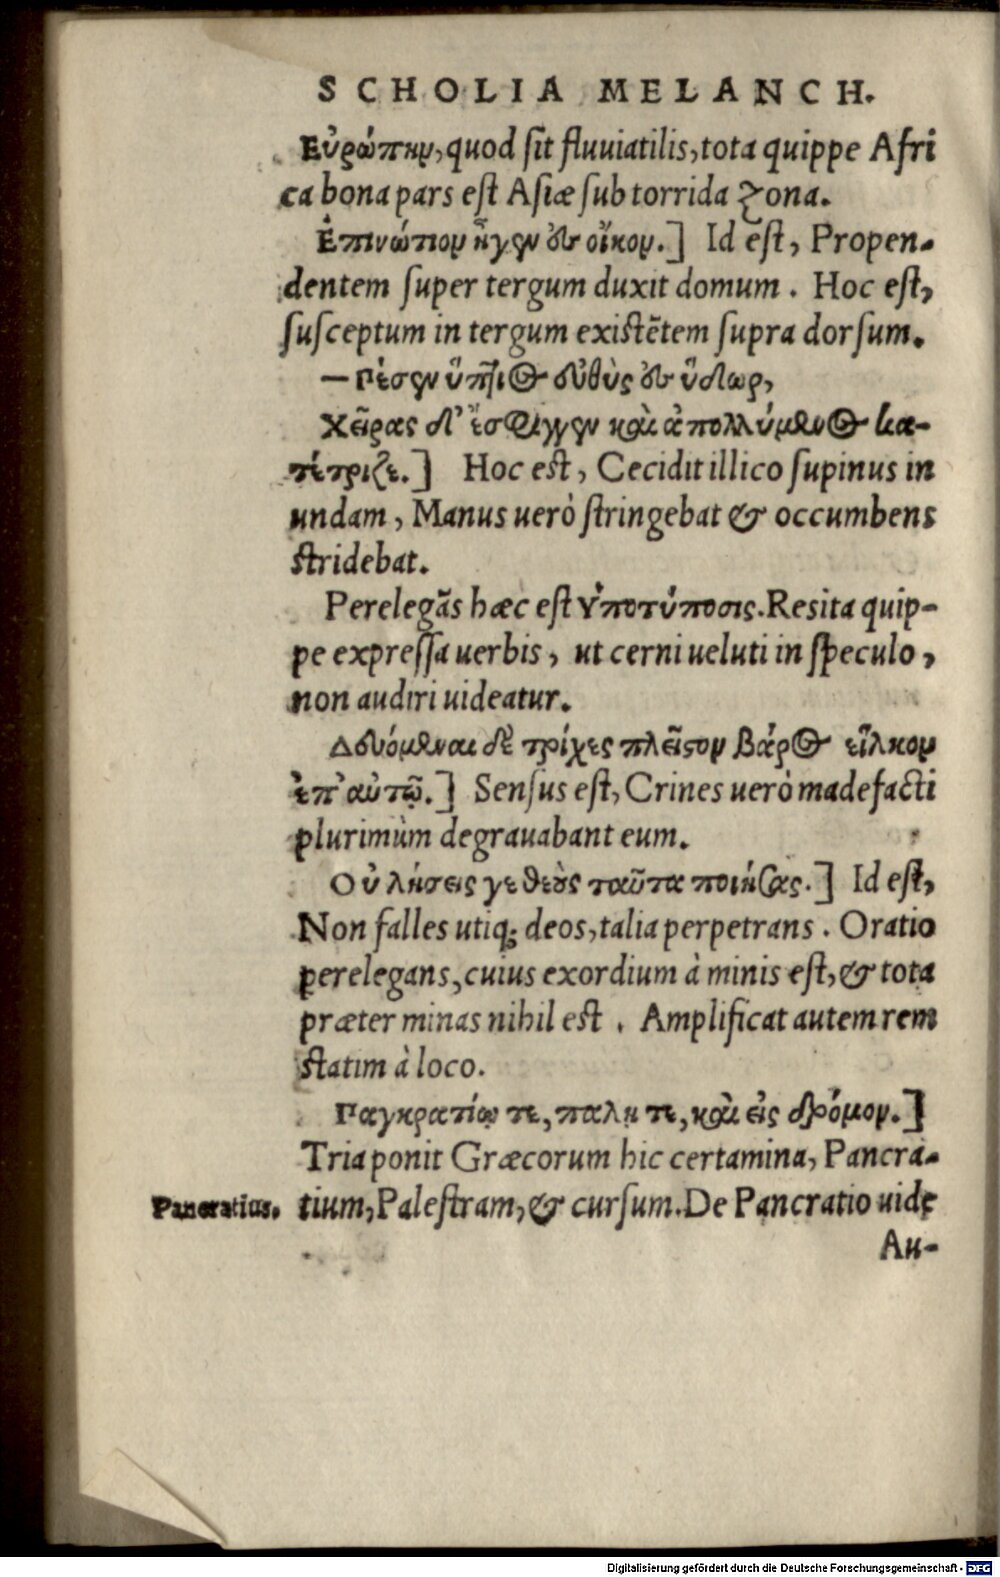 SCHOLIA MELANCH.
Εὐρώπην, quod ſit fluuiatilis, tota quippe Afri
ca bona pars eſt Aſiæ ſub torrida zona.
Ἐπινώτιον ἦγεν ἐν οἴκον.] Id eſt, Propen-
dentem ſuper tergum duxit domum. Hoc eſt,
ſuſceptum in tergum exiſtẽtem ſupra dorſum.
— Πέσεν ὕπτιος εὐθὺς ἐν ὕδωρ,
Χεῖρας δ' ἔσφιγγεν καὶ ἀπολλύμενος κα-
τέτριζε.] Hoc eſt, Cecidit illico ſupinus in
undam, Manus uerò ſtringebat & occumbens
ſtridebat.
Perelegãs hæc eſt Ὑποτύποσις. Res ita quip-
pe expreſſa uerbis, ut cerni ueluti in ſpeculo,
non audiri uideatur.
Δευόμεναι δὲ τρίχες πλεῖστον βάρος εἷλκον
ἐπ' αὐτῷ.] Senſus eſt, Crines uerò madefacti
plurimùm degrauabant eum.
Οὐ λήσεις γε θεοὺς ταῦτα ποιήσας.] Id eſt,
Non falles utiq; deos, talia perpetrans. Oratio
perelegans, cuius exordium à minis eſt, & tota
præter minas nihil eſt. Amplificat autem rem
ſtatim à loco.
Παγκρατίῳ τε, παλη τε, καὶ εἰς δρόμον.]
Tria ponit Græcorum hic certamina, Pancra-
Pancratius. tium, Paleſtram, & curſum. De Pancratio uide
Au-
Digitalisierung gefördert durch die Deutsche Forschungsgemeinschaft - DFG